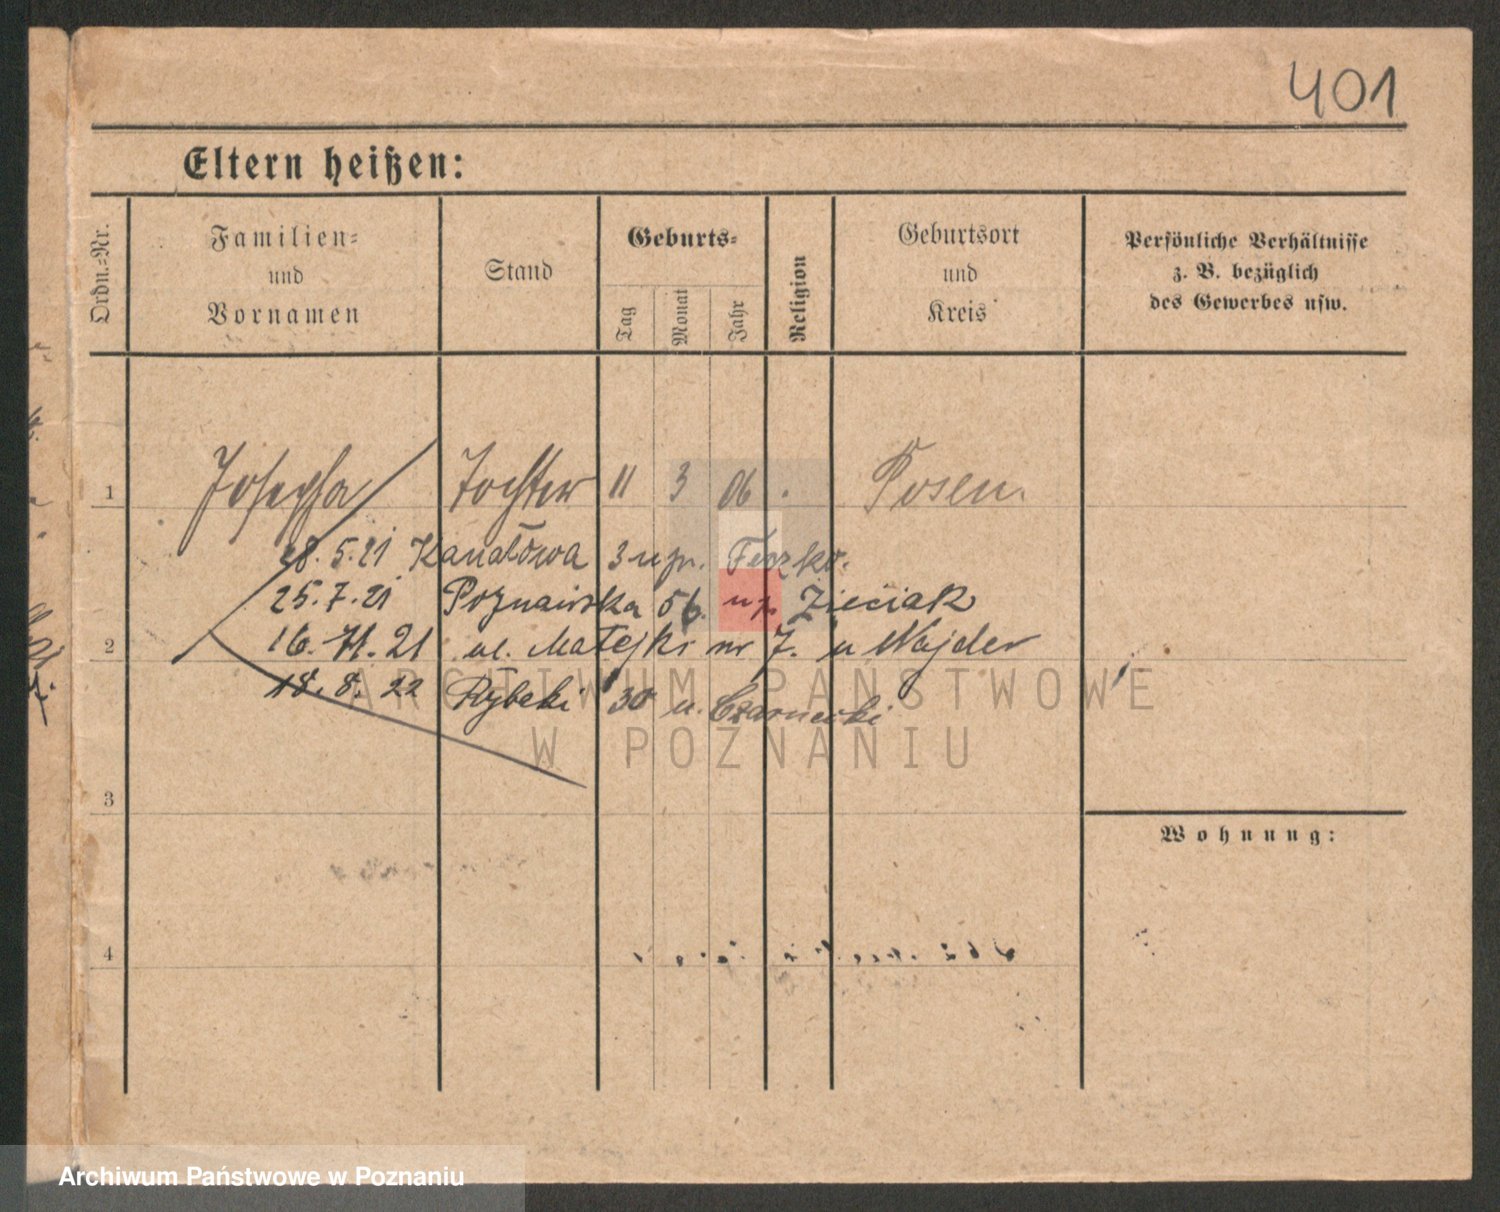 401
Eltern heißen:
Ordn.-Nr.
Familien-
und
Vornamen
Stand
Geburts-
Tag
Monat
Jahr
Religion
Geburtsort
und
Kreis
Persönliche Verhältnisse
z. B. bezüglich
des Gewerbes usw.
1 Josepha Tochter 11 3 06. Posen.
28. 5. 21 Kanałowa 3 u p.
25. 7. 21 Poznańska 56. u p. Zieciak
2
16. 11. 21 ul. Matejki nr 7. u Wajder
18. 8. 22 Rybaki 30 u. Czarnecki
ARCHIWUM PAŃSTWOWE
W POZNANIU
3
Wohnung:
4
Archiwum Państwowe w Poznaniu